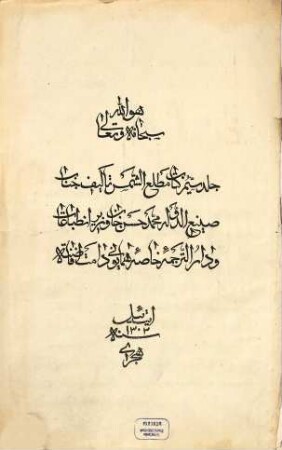 هو الله
سبحانه و تعالی
جلد سیم کتاب مطلع الشمس تألیف جناب
صنیع الدوله محمد حسن خان وزیر انطباعات
و دار الترجمۀ خاصۀ همایونی دامت افاضاته
ایت ئیل
سنه ۱۳۰۳
هجری